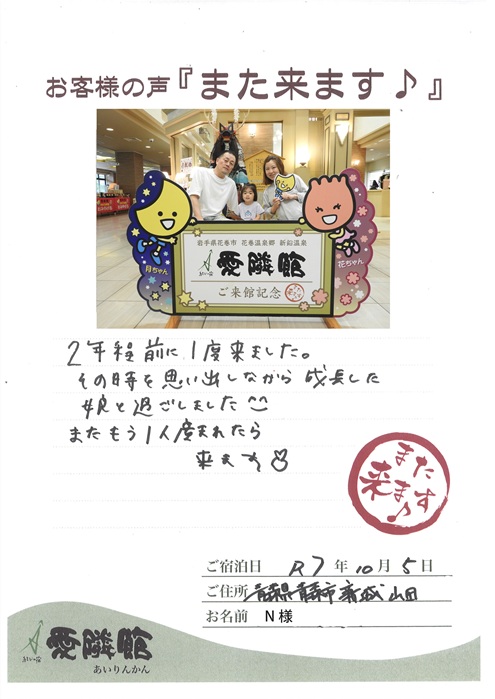 お客様の声『また来ます♪』
岩手県花巻市 花巻温泉郷 新鉛温泉
愛隣館
ご来館記念
月ちゃん
花ちゃん
2年程前に1度来ました。
その時を思い出しながら成長した
娘と過ごしました
またもう1人産まれたら
来ます
また
来ます♪
ご宿泊日 R7年10月5日
ご住所 青森県青森市新城山田
お名前 N様
愛隣館
あいりんかん